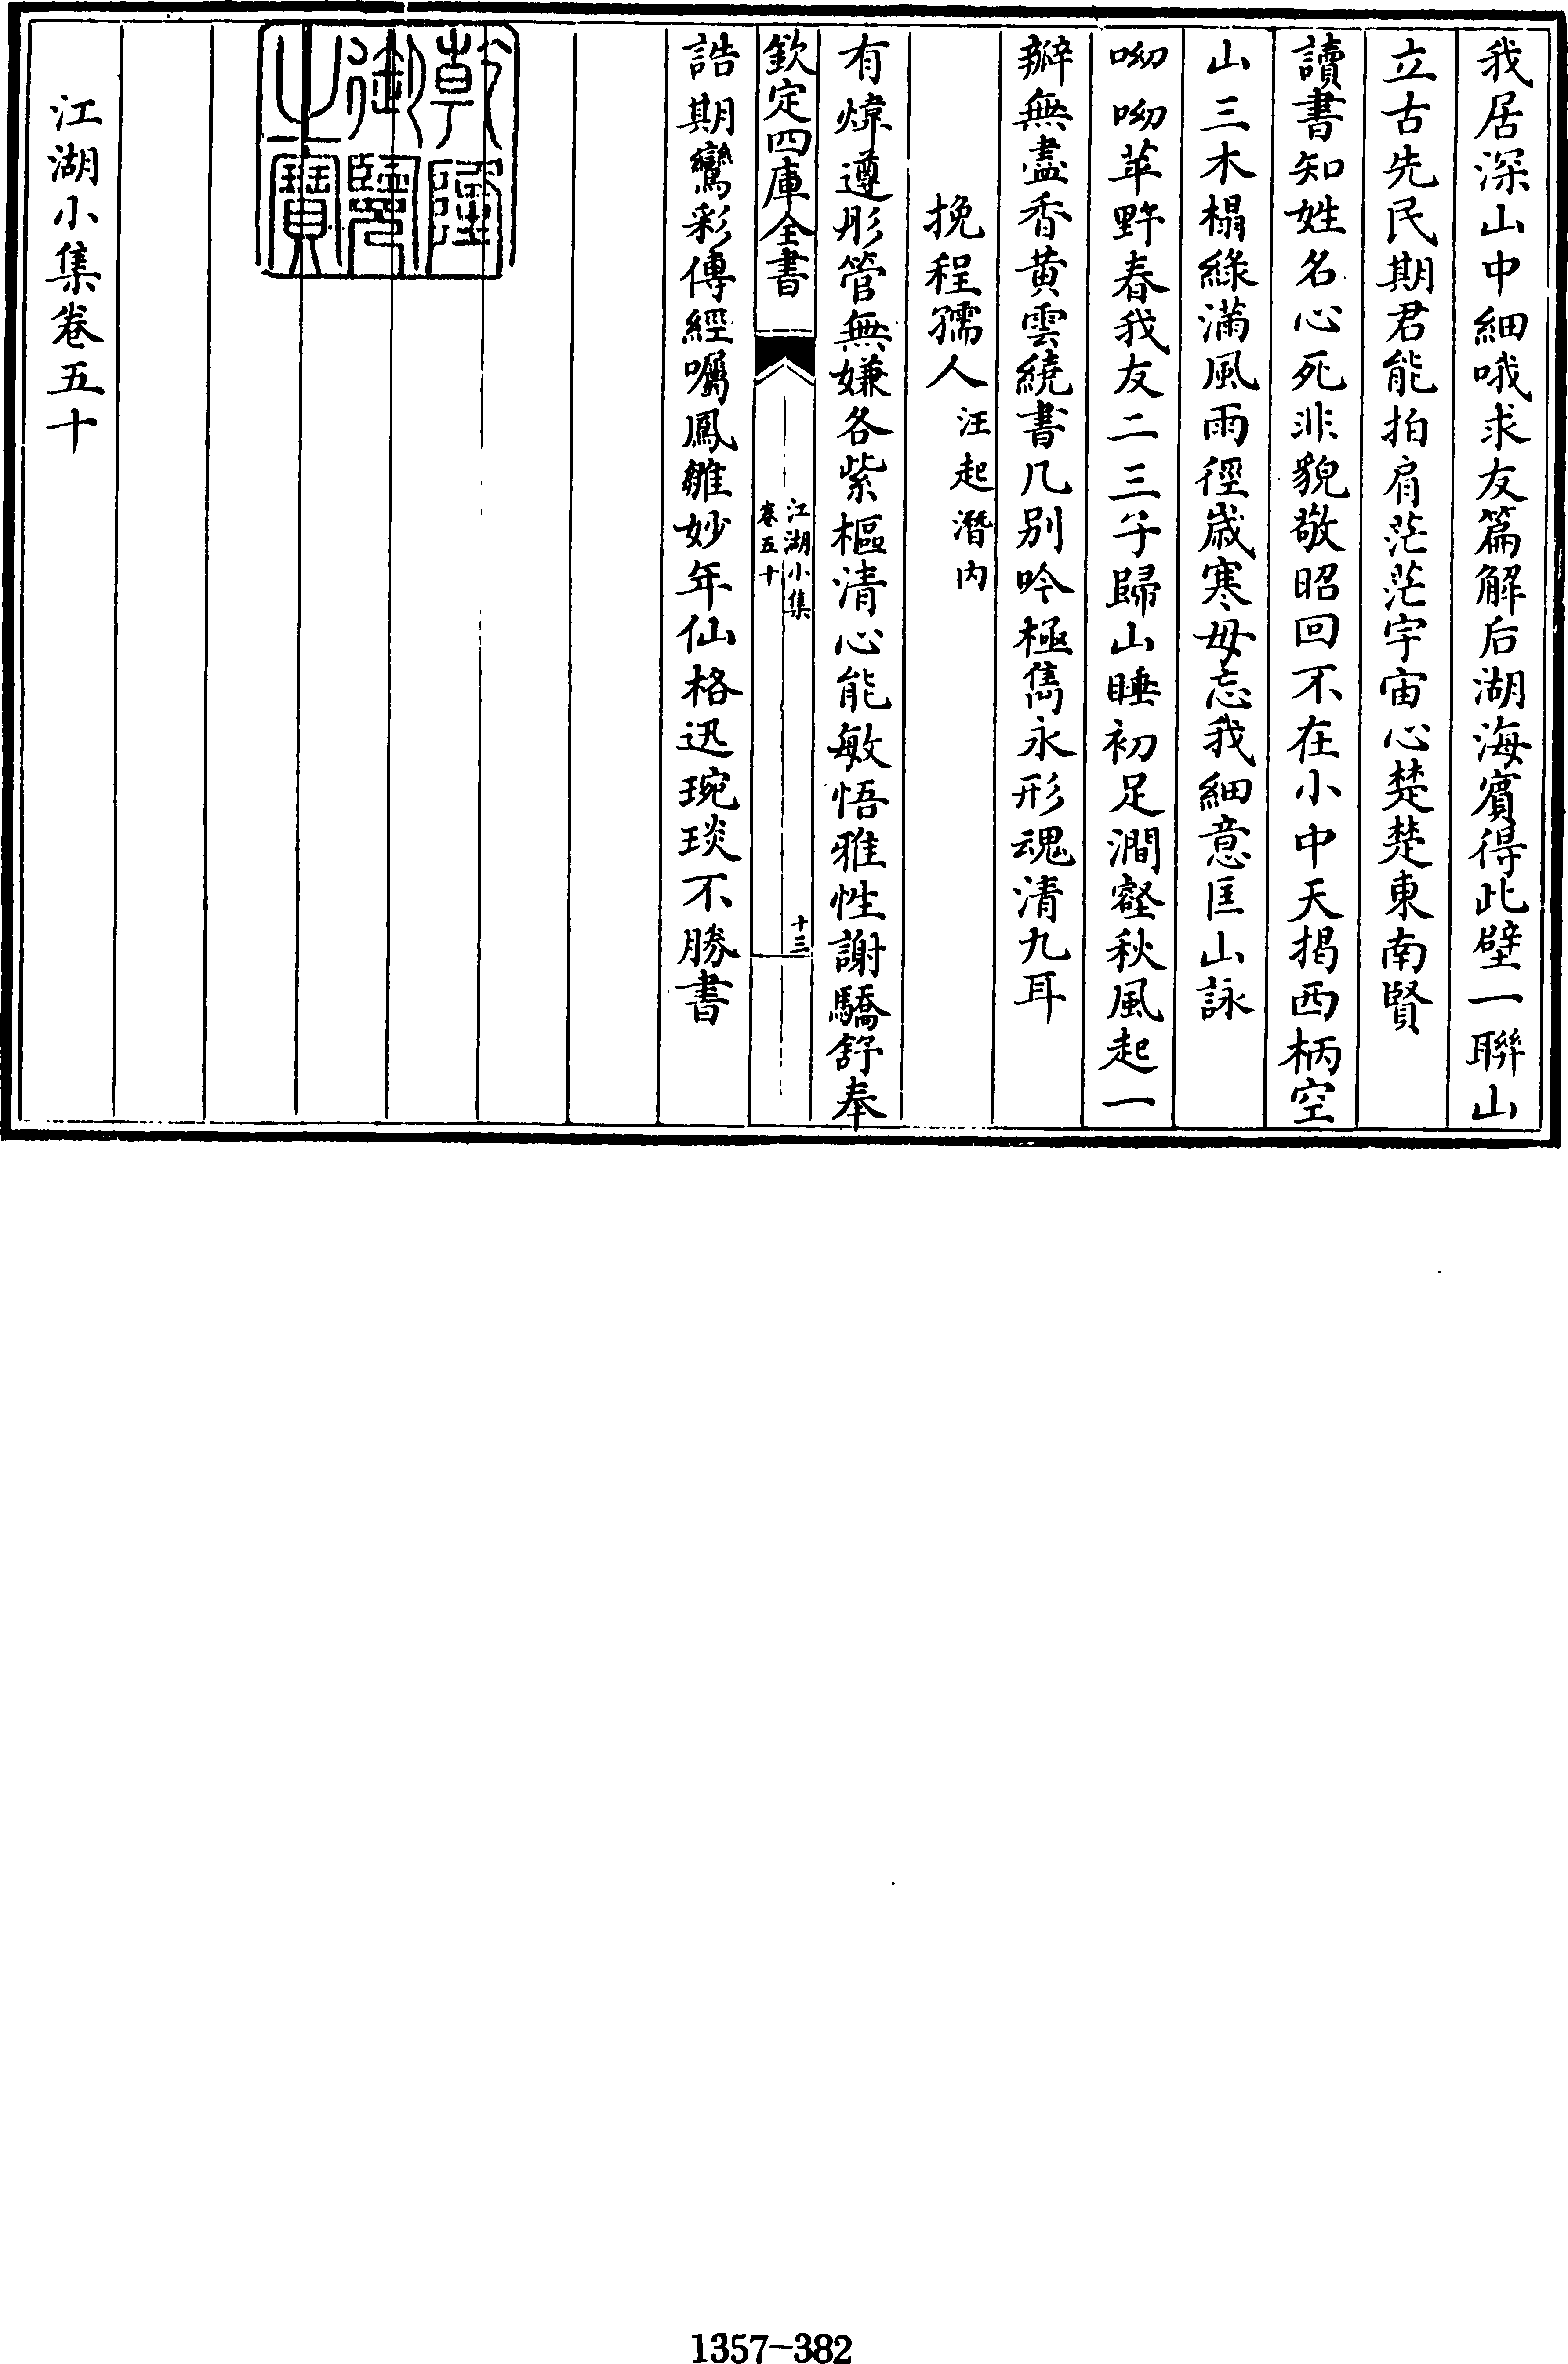 我居深山中細哦求友篇解后湖海賓得此璧一聯山
立古先民期君能拍肩茫茫宇宙心楚楚東南賢
讀書知姓名心死非貌敬昭回不在小中天揭西柄空
山三木榻綠滿風雨徑歲寒毋忘我細意匡山詠
呦呦苹野春我友二三子歸山睡初足澗壑秋風起一
瓣無盡香黄雲繞書几别吟極雋永形魂清九耳
挽程孺人汪起潛内
有煒遵彤管無嫌各紫樞清心能敏悟雅性謝驕舒奉
欽定四庫全書
江湖小集
卷五十
十三
誥期鸞彩傳經囑鳳雛妙年仙格迅琬琰不勝書
乾隆
御覽
之寶
江湖小集卷五十
1357-382